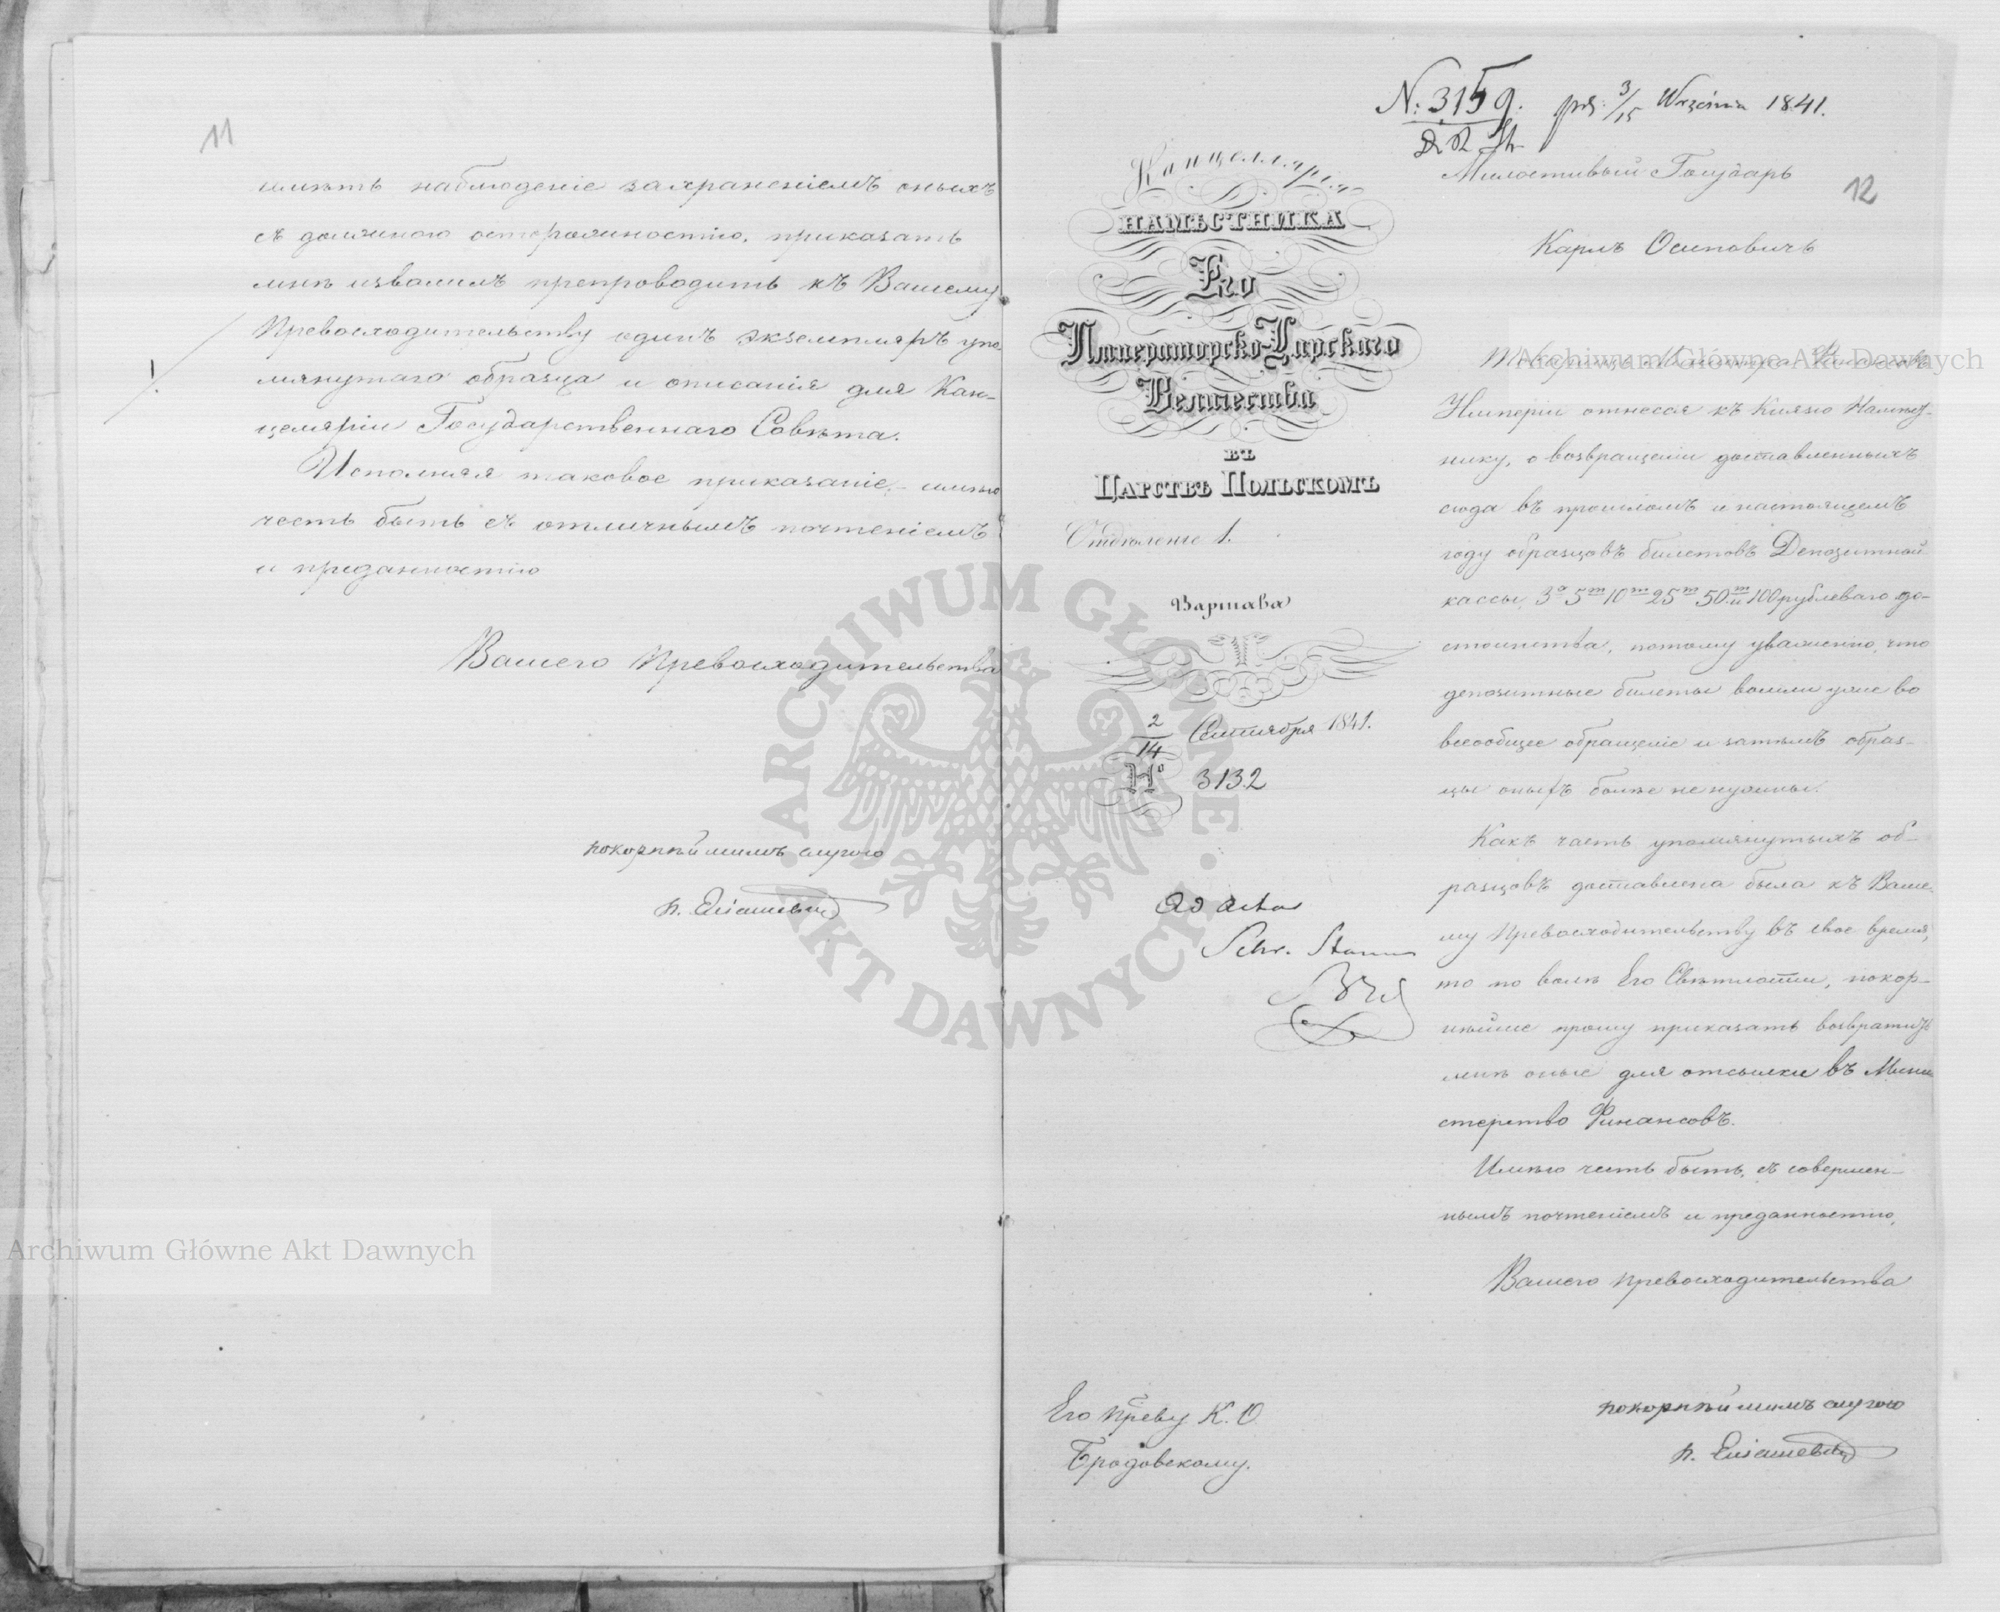 11
имѣть наблюденіе за храненіемъ оныхъ
съ должною осторожностію, приказать
мнѣ изволилъ препроводить къ Вашему
Превосходительству одинъ экземпляръ упо-
мянутаго образца и описанія для Кан-
целяріи Государственнаго Совѣта.
Исполняя таковое приказаніе, имѣю
честь быть съ отличнымъ почтеніемъ
и преданностію
Вашего Превосходительства
покорнѣйшимъ слугою
N: 3159. 3/15 Września 1841.
12
Канцелярія
НАМѢСТНИКА
Его
Императорско-Царскаго
Величества
ВЪ
ЦАРСТВѢ ПОЛЬСКОМЪ
Отдѣленіе 1.
Варшава
2/14 Сентября 1841.
№ 3132
Ad acta
Милостивый Государь
Карлъ Осиповичъ
Министръ Финансовъ
Имперіи отнесся къ Князю Намѣст-
нику, о возвращеніи доставленныхъ
сюда въ прошломъ и настоящемъ
году образцовъ билетовъ Депозитной
кассы, 3х 5ти 10ти 25ти 50ти и 100 рублеваго до-
стоинства, потому уваженію, что
депозитные билеты вошли уже во
всеобщее обращеніе и затѣмъ образ-
цы оныхъ болѣе не нужны.
Какъ часть упомянутыхъ об-
разцовъ доставлена была къ Ваше-
му Превосходительству въ свое время,
то по волѣ Его Свѣтлости, покор-
нѣйше прошу приказать возвратить
мнѣ оные для отсылки въ Мини-
стерство Финансовъ.
Имѣю честь быть, съ совершен-
нымъ почтеніемъ и преданностію,
Вашего Превосходительства
покорнѣйшимъ слугою
Его Прву К. О.
Бродовскому.
Archiwum Główne Akt Dawnych
Archiwum Główne Akt Dawnych
ARCHIWUM GŁÓWNE AKT DAWNYCH